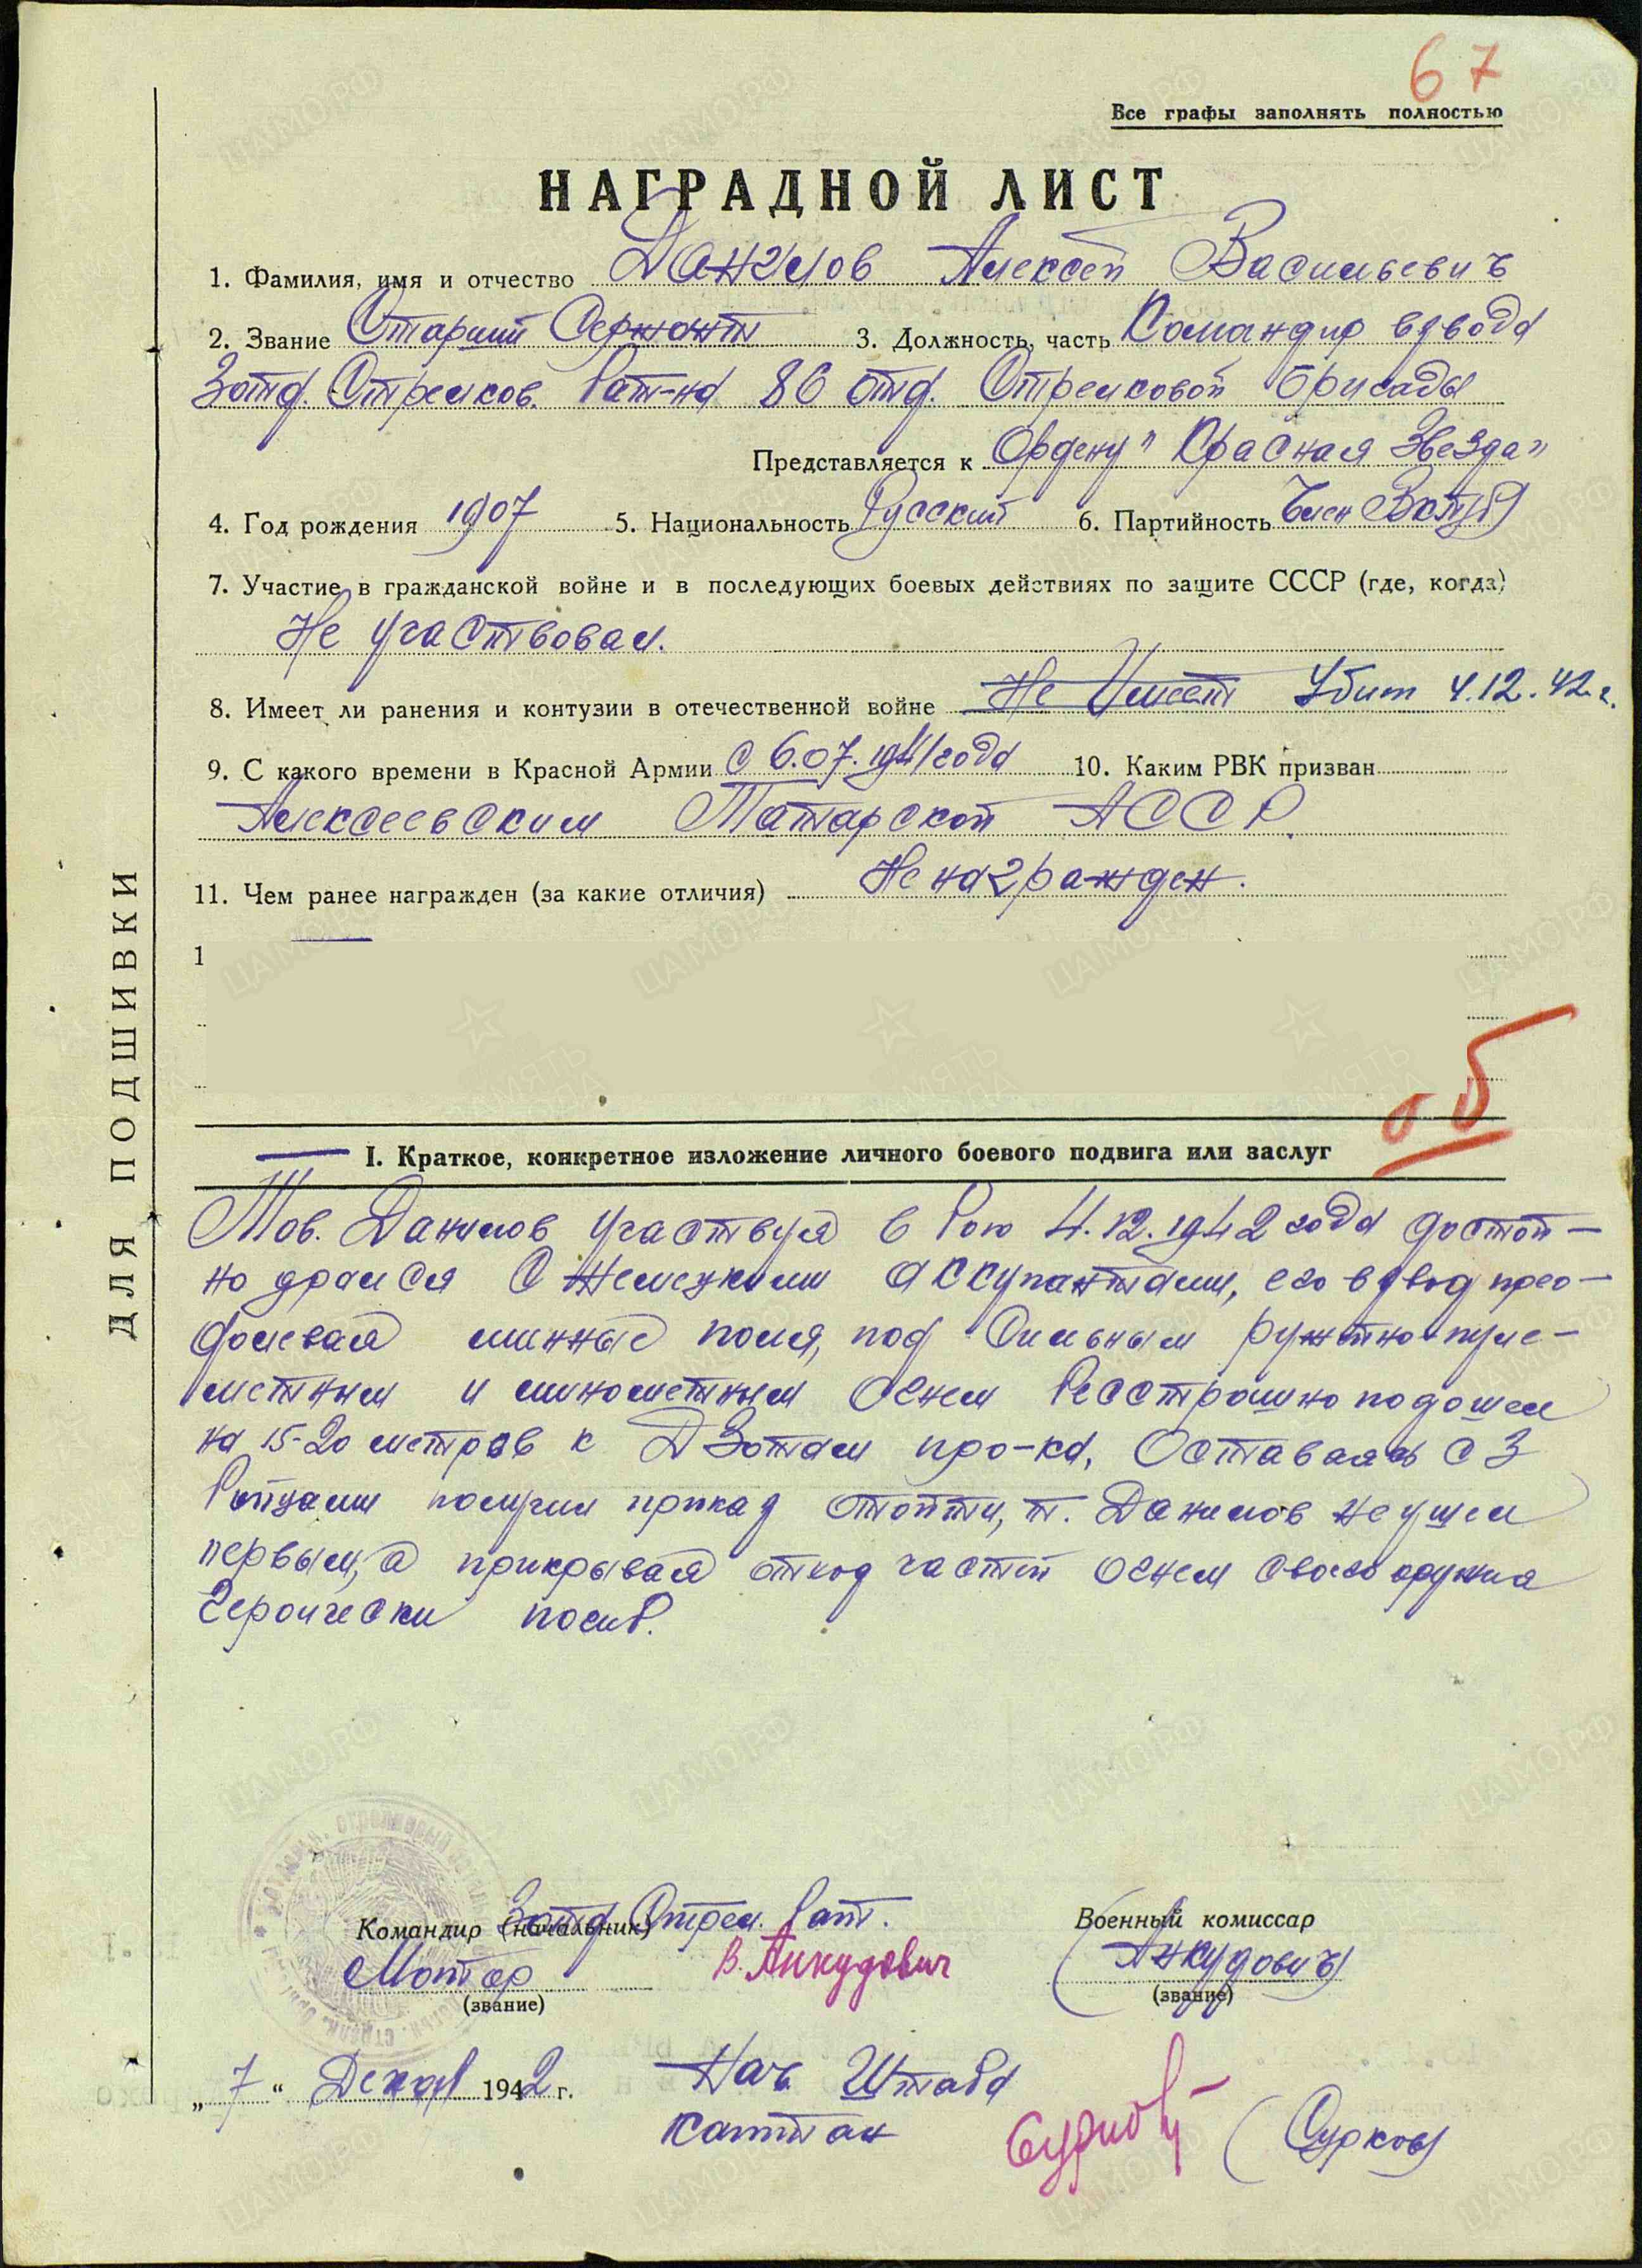 67
Все графы заполнять полностью
НАГРАДНОЙ ЛИСТ
1. Фамилия, имя и отчество Данилов Алексей Васильевич
2. Звание Старший Сержант 3. Должность, часть Командир взвода
3 отд. Стрелков. Бат-на 86 отд. Стрелковой бригады
Представляется к Ордену "Красная Звезда"
4. Год рождения 1907 5. Национальность Русский 6. Партийность Член ВКП(б)
7. Участие в гражданской войне и в последующих боевых действиях по защите СССР (где, когда)
Не участвовал.
8. Имеет ли ранения и контузии в отечественной войне Не Имеет Убит 4.12.42 г.
9. С какого времени в Красной Армии с 6.07.1941 года 10. Каким РВК призван
Алексеевским Татарской АССР.
11. Чем ранее награжден (за какие отличия) Не награжден.
1
об
I. Краткое, конкретное изложение личного боевого подвига или заслуг
Тов. Данилов участвуя в бою 4.12.1942 года достой-
но дрался с немецкими аккупантами, его взвод прео-
долевая минные поля, под сильным ружейно-пуле-
метным и минометным огнем бесстрашно подошел
на 15-20 метров к ДЗотам про-ка, Оставаясь с 3
бойцами получил приказ отойти, т. Данилов не ушел
первым, а прикрывая отход частей огнем своего оружия
героически погиб.
Командир (начальник) 3 отд Стрел. бат.
Военный комиссар
Майор В. Анкудович (Анкудович)
(звание) (звание)
„7" Декаб 1942 г. Нач Штаба
капитан Сурков (Сурков)
ДЛЯ ПОДШИВКИ
ЦАМО.РФ
ПАМЯТЬ